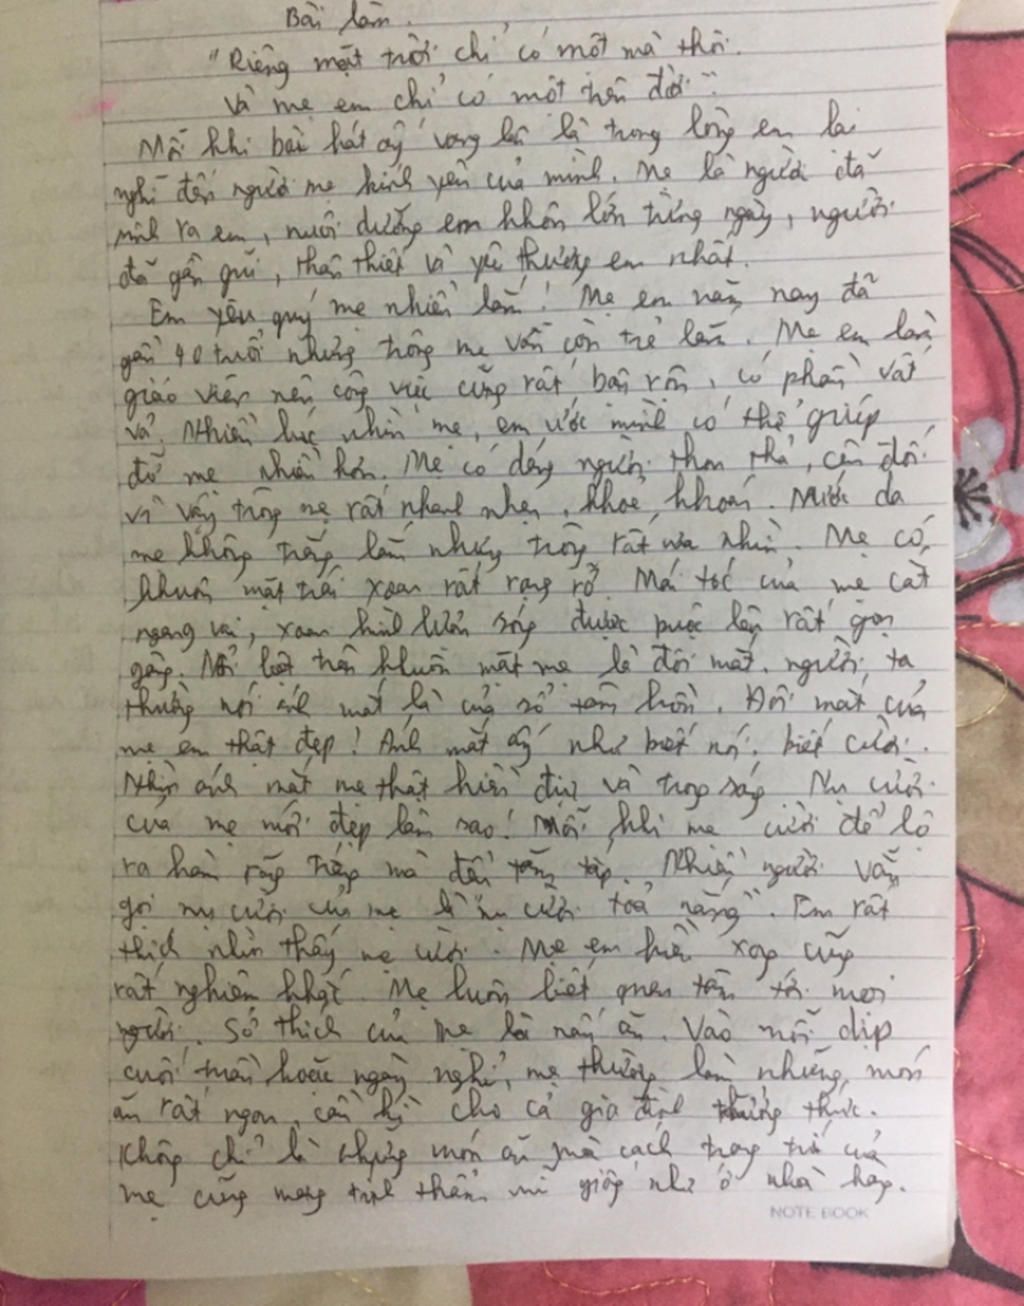 Bài làm.
"Riêng mặt trời chỉ có một mà thôi.
Và mẹ em chỉ có một trên đời":
Mỗi khi bài hát ấy vang lên là trong lòng em lại
nghĩ đến người mẹ kính yêu của mình. Mẹ là người đã
sinh ra em, nuôi dưỡng em khôn lớn từng ngày, người
đã gần gũi, thân thiết và yêu thương em nhất.
Em yêu quý mẹ nhiều lắm! Mẹ em năm nay đã
gần 40 tuổi nhưng trông mẹ vẫn còn trẻ lắm. Mẹ em làm
giáo viên nên công việc cũng rất bận rộn, có phần vất
vả. Nhiều lúc nhìn mẹ, em ước mình có thể giúp
đỡ mẹ nhiều hơn. Mẹ có dáng người thon thả, cân đối
vì vậy trông mẹ rất nhanh nhẹn, khoẻ khoắn. Nước da
mẹ không trắng lắm nhưng trông rất ưa nhìn. Mẹ có
khuôn mặt trái xoan rất rạng rỡ. Mái tóc của mẹ cắt
ngang vai, xoăn hình lượn sóng được buộc lên rất gọn
gàng. Nổi bật trên khuôn mặt mẹ là đôi mắt. người ta
thường nói ánh mắt là cửa sổ tâm hồn. Đôi mắt của
mẹ em thật đẹp! Ánh mắt ấy như biết nói, biết cười.
Nhìn ánh mắt mẹ thật hiền dịu và trong sáng. Nụ cười
của mẹ mới đẹp làm sao! Mỗi khi mẹ cười để lộ
ra hàm răng trắng mà đều tăm tắp. Nhiều người vẫn
gọi nụ cười của mẹ là "nụ cười toả nắng". Em rất
thích nhìn thấy mẹ cười. Mẹ em hiền xong cũng
rất nghiêm khắc. Mẹ luôn biết quan tâm tới mọi
người. Sở thích của mẹ là nấu ăn. Vào mỗi dịp
cuối tuần hoặc ngày nghỉ, mẹ thường làm những món
ăn rất ngon, cầu kì cho cả gia đình thưởng thức.
Không chỉ là những món ăn mà cách trang trí của
mẹ cũng mang tính thẩm mĩ giống như ở nhà hàng.
NOTE BOOK